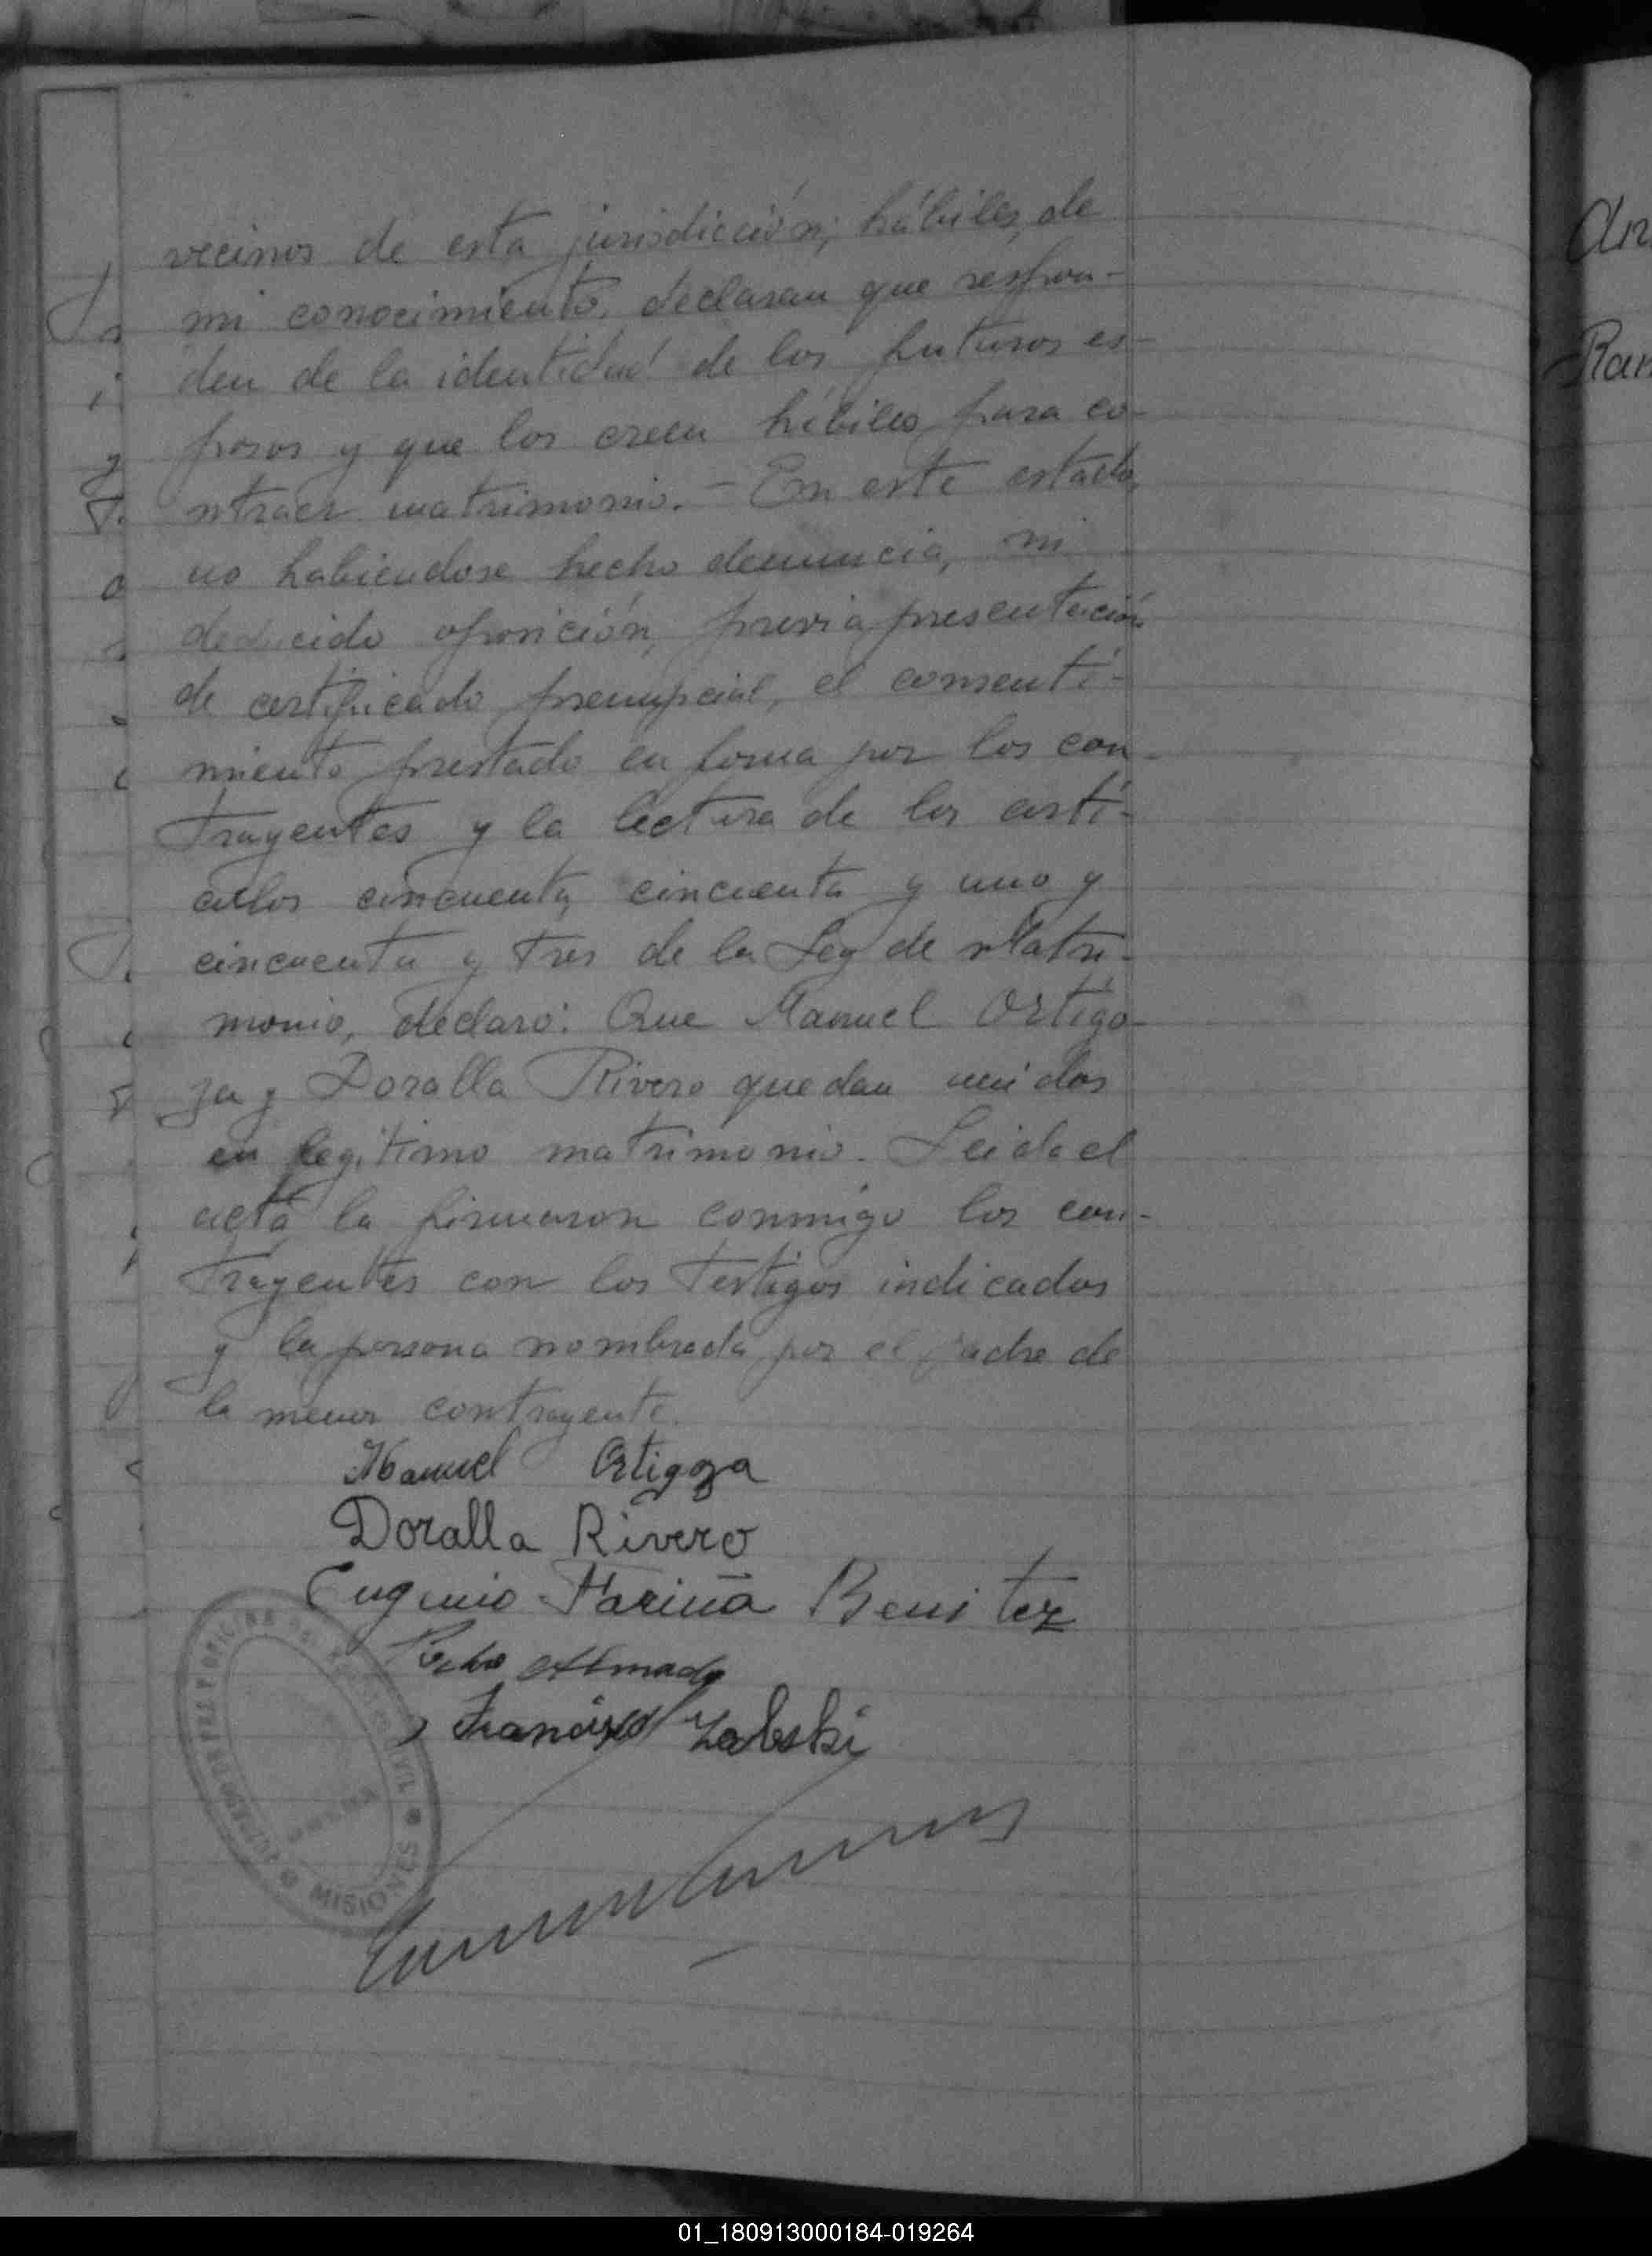 vecinos de esta jurisdicción; hábiles, de
mi conocimiento, declaran que respon-
den de la identidad de los futuros es-
posos y que los creen hébiles para co-
ntraer matrimonio. - En este estado,
no habiendose hecho denuncia, ni
deducido oposición, previa presentación
de certificado prenupcial, el consenti-
miento prestado en forma por los con-
trayentes y la lectura de los arti-
culos cincuenta, cincuenta y uno y
cincuenta y tres de la Ley de Matri-
monio, declaro: Que Manuel Ortigo-
za y Doralla Rivero quedan unidos
en legitimo matrimonio. Leida el
acta la firmaron conmigo los con-
trayentes con los testigos indicados
y la persona nombrada por el padre de
la menor contrayente.
Manuel Ortigoza
Doralla Rivero
Eugenio Fariña Benitez
Pedro Almada
Francisco Zaleski
JUZGADO DE PAZ Y OFICINA DEL REGISTRO CIVIL
MISIONES
An
Ram
01_180913000184-019264